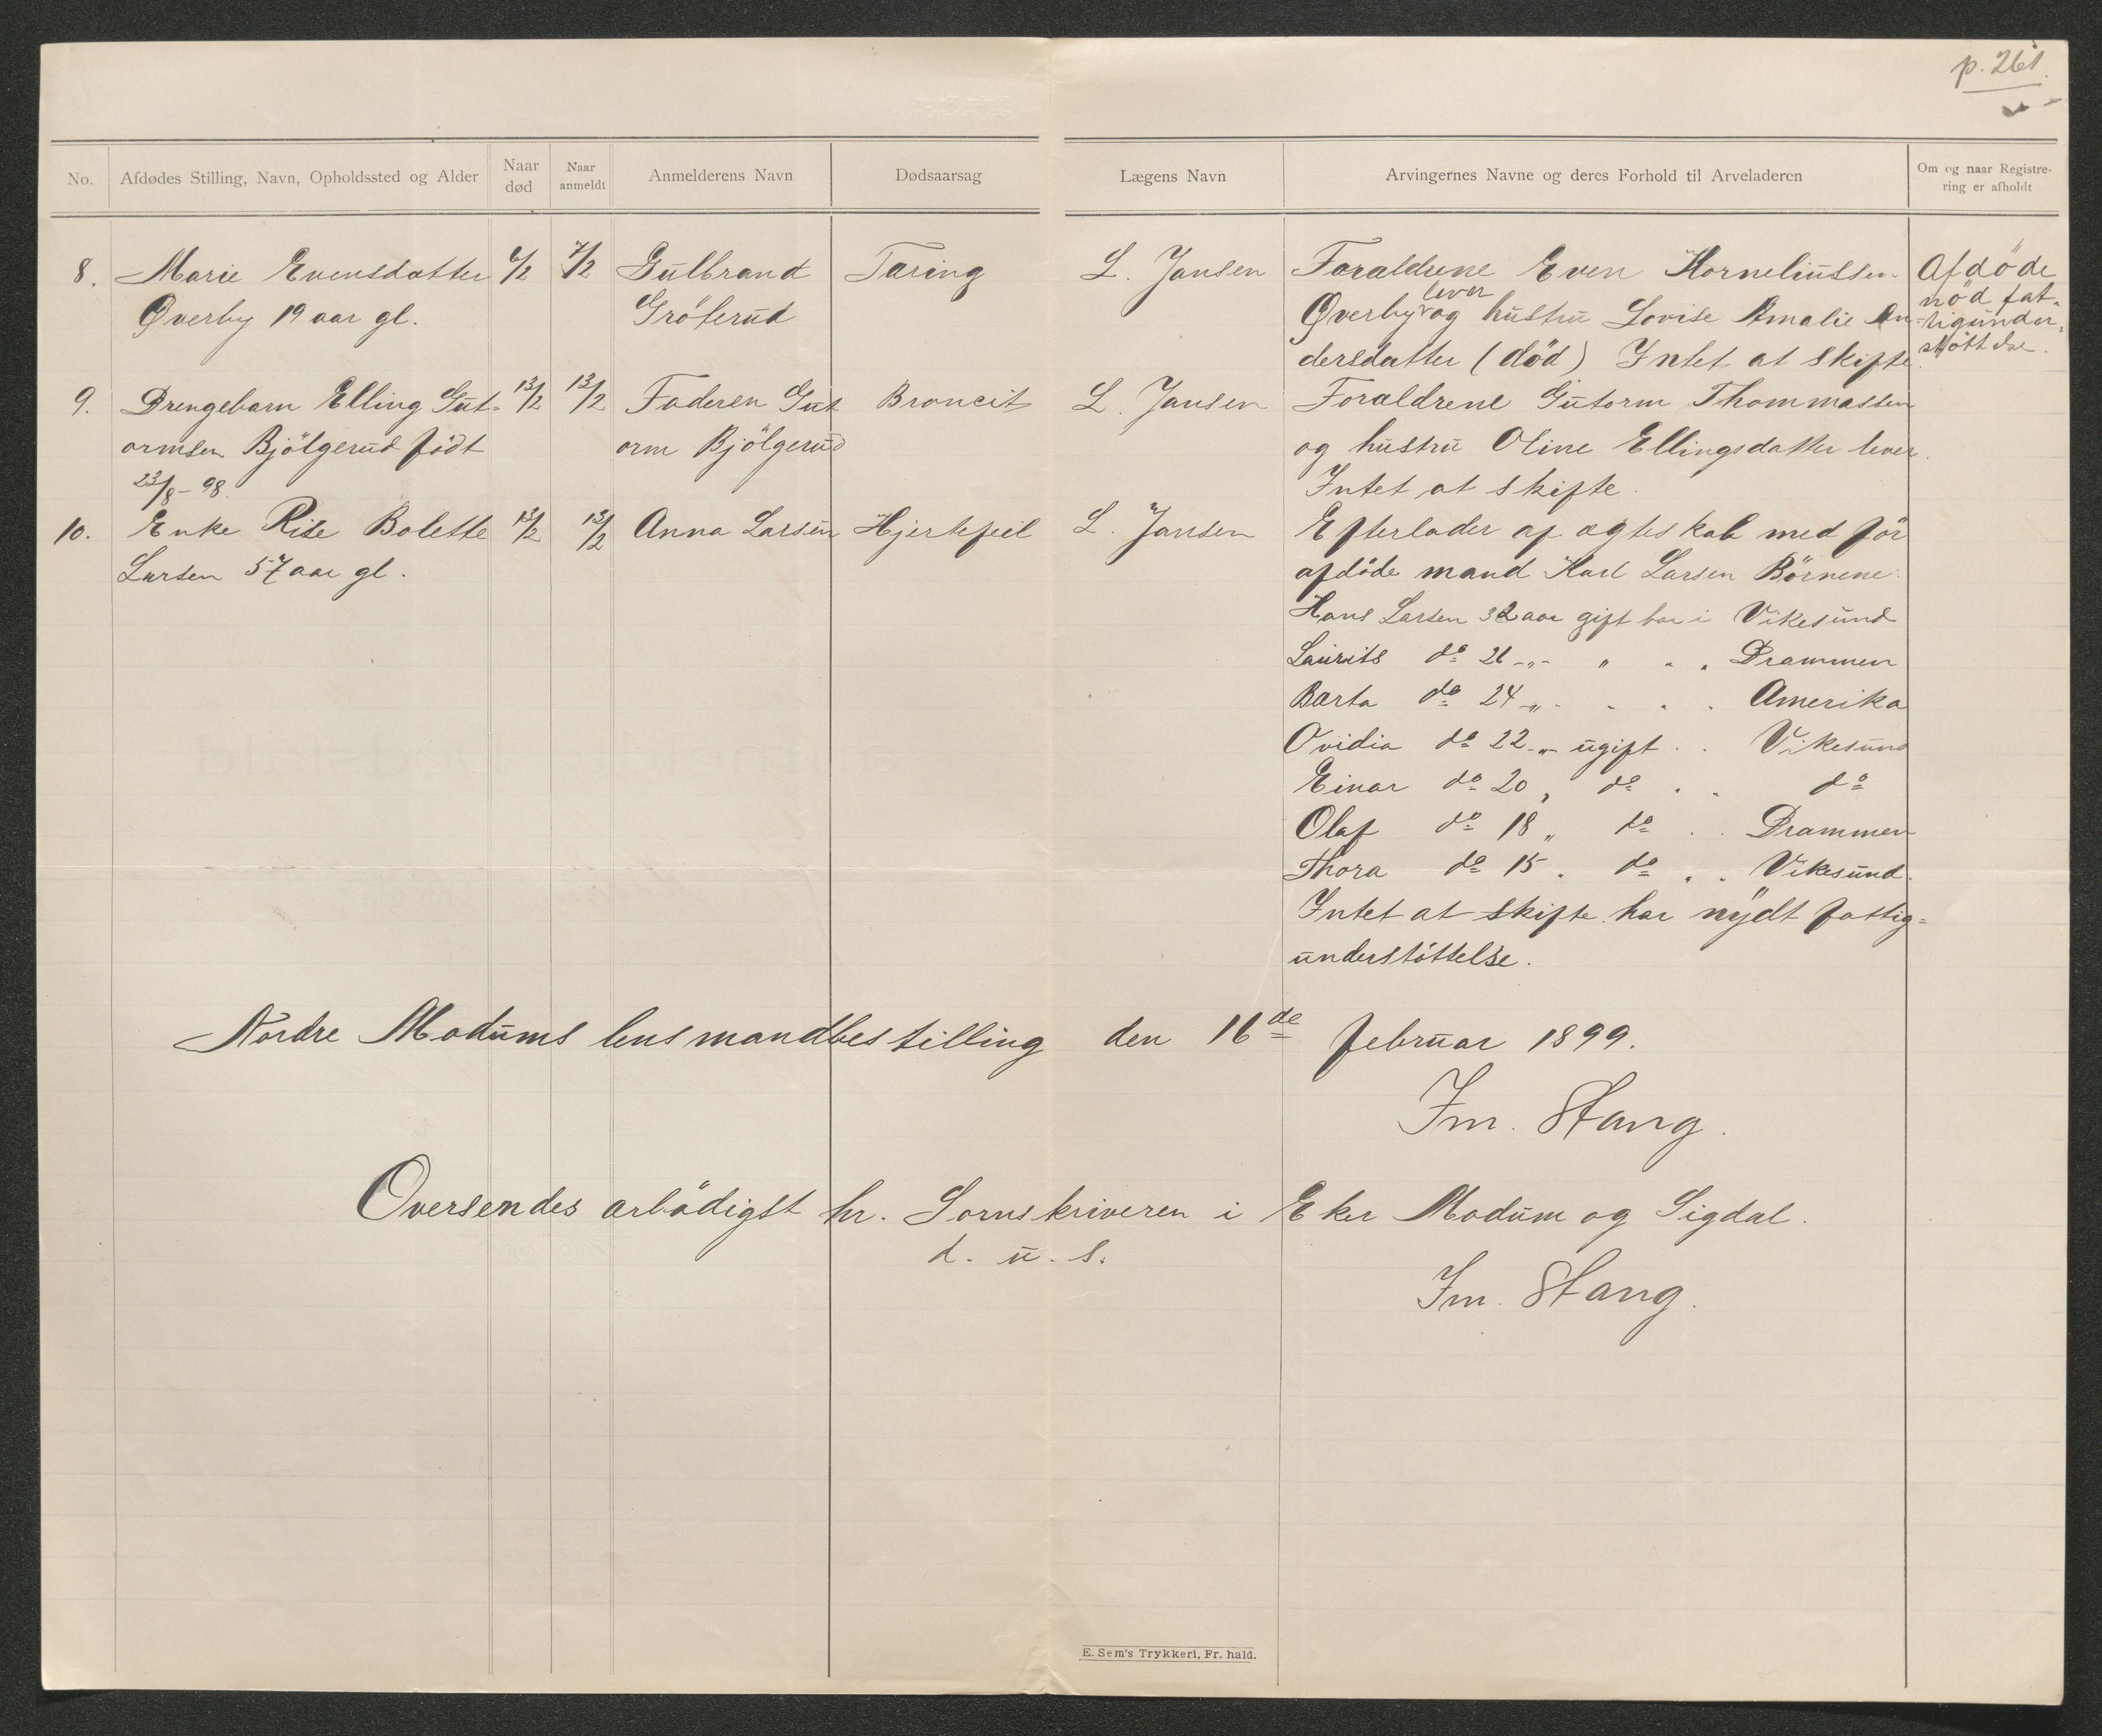 p. 261.
No.
Afdødes Stilling, Navn, Opholdssted og Alder
Naar død
Naar anmeldt
Anmelderens Navn
Dødsaarsag
Lægens Navn
Arvingernes Navne og deres Forhold til Arveladeren
Om og naar Registrering er afholdt
8. Marie Evensdatter 6/2 7/2 Gulbrand Tæring L. Jansen Forældrene Even Korneliussen Afdöde
Øverby 19 aar gl. Gröterud Øverby lever og hustru Lovise Amalie An- nöd fat-
tigunder-
dersdatter (död) Intet at skifte. støttelse.
9. Drengebarn Elling Gut- 13/2 13/2 Faderen Gut Broncit L. Jansen Foraldrene Gutorm Thommassen
ormsen Bjölgerud födt orm Bjölgerud og hustru Oline Ellingsdatter lever.
23/8-98. Intet at skifte.
10. Enke Rise Bolette 13/2 13/2 Anna Larsen Hjertefeil L. Jansen Efterlader af ægteskab med för
Larsen 57 aar gl. afdöde mand Karl Larsen Börnene:
Hans Larsen 32 aar gift bor i Vikesund
Laurits do 26 -"- " . . Drammen
Barta do 24 -"- . . . Amerika
Ovidia do 22 -"- ugift . . Vikesund
Einar do 20 " do . . do
Olaf do 18 " do . . Drammen
Thora do 15 . do . . Vikesund.
Intet at skifte har nydt fattig-
understöttelse.
Nordre Modums lensmandbestilling den 16de februar 1899.
Im. Stang.
Oversendes arbödigst hr. Sornskriveren i Eker Modum og Sigdal.
d. u. s.
Im. Stang.
E. Sem's Trykkeri, Fr. hald.